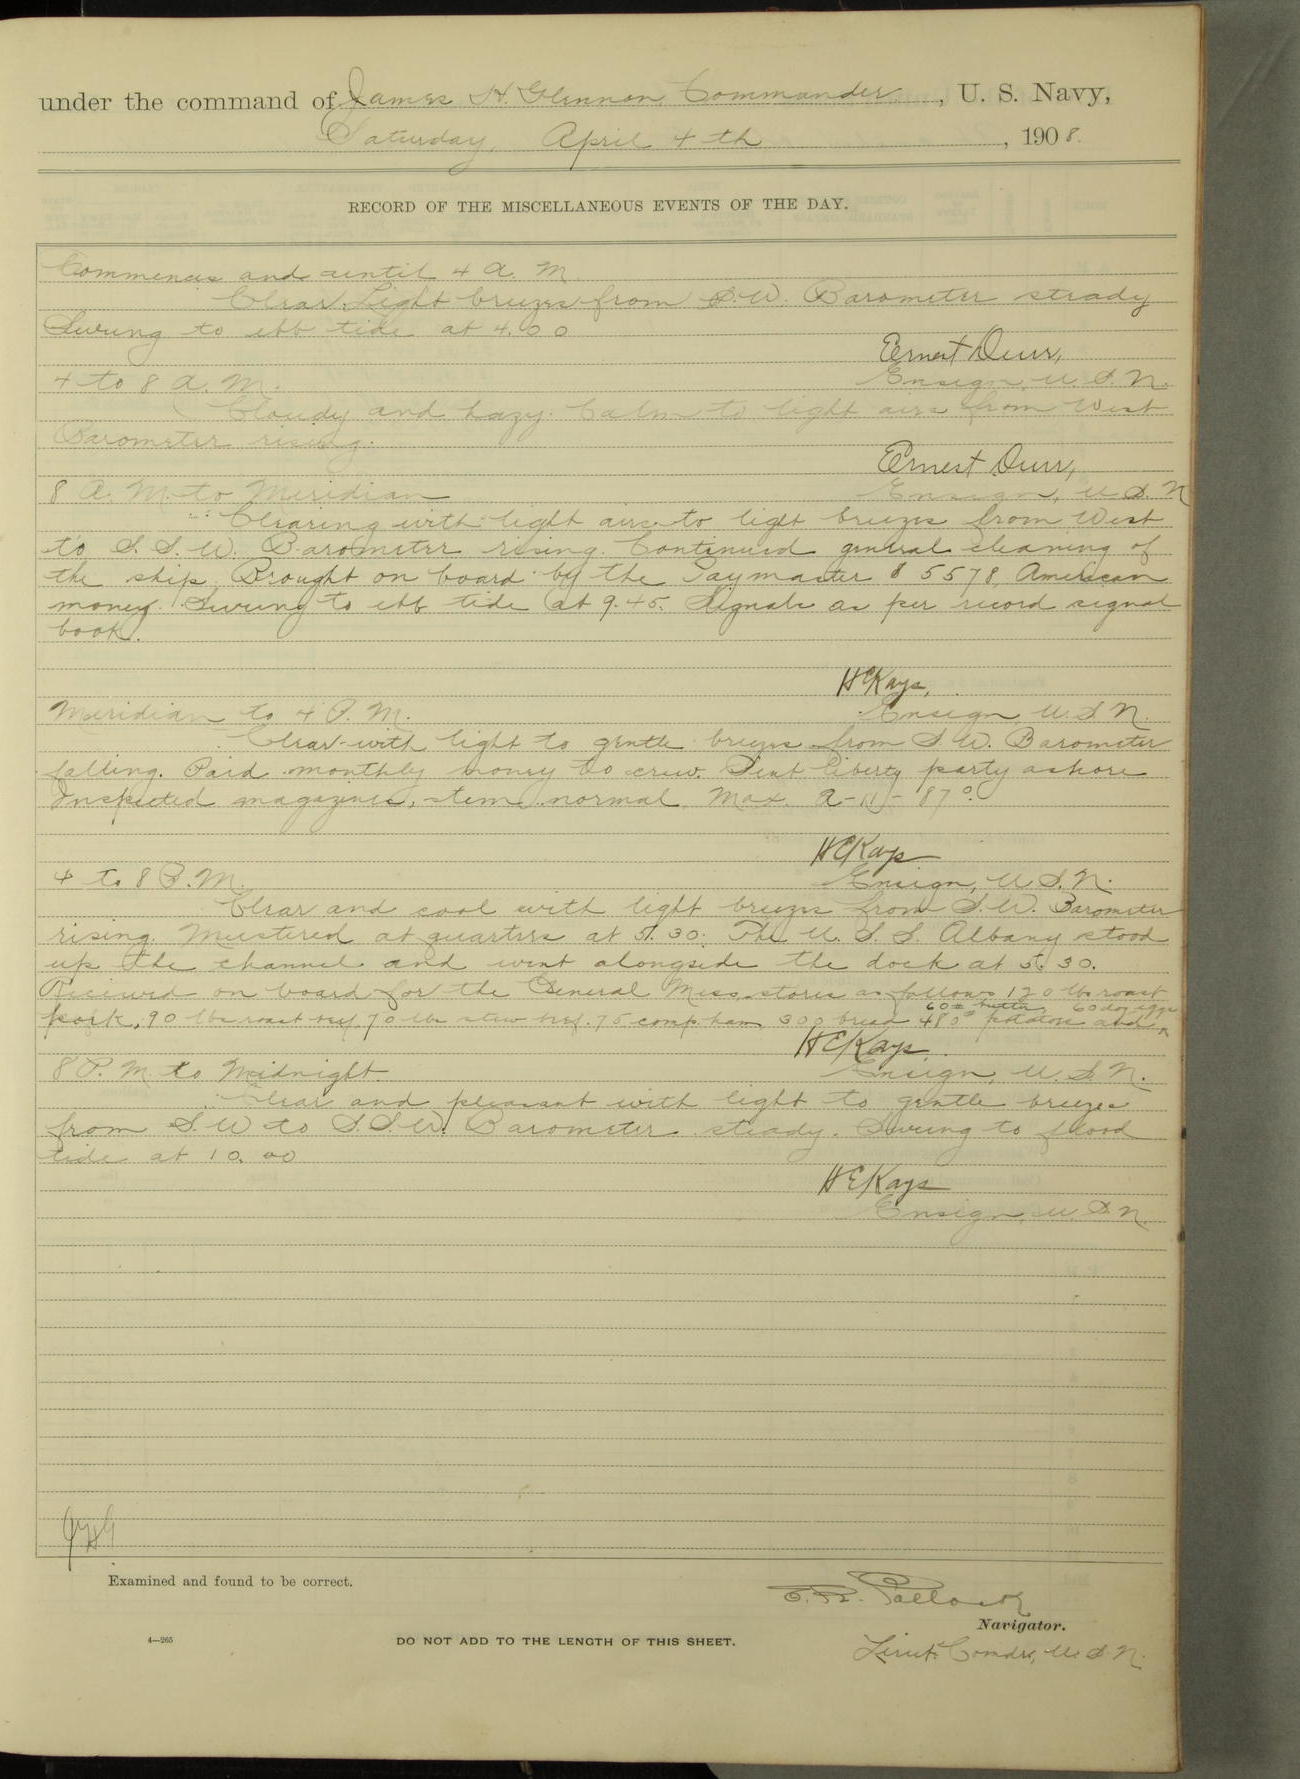 under the command of James H. Glennon, Commander, U. S. Navy,
Saturday, April 4th, 1908.
RECORD OF THE MISCELLANEOUS EVENTS OF THE DAY.
Commences and until 4 A. M.
Clear. Light breezes from S.W. Barometer steady
Swung to ebb tide at 4.00
Ernest Durr,
Ensign, U.S.N.
4 to 8 A. M.
Cloudy and hazy. Calm to light airs from West
Barometer rising.
Ernest Durr,
Ensign, U.S.N
8 A. M. to Meridian
Clearing with light airs to light breezes from West
to S.S.W. Barometer rising. Continued general cleaning of
the ship. Brought on board by the Paymaster $5578, American
money. Swung to ebb tide at 9.45. Signals as per record signal
book.
HCKays,
Ensign, U.S.N.
Meridian to 4 P. M.
Clear with light to gentle breezes from S.W. Barometer
falling. Paid monthly money to crew. Sent liberty party ashore
Inspected magazines, normal. Max. 87°.
HCKays
Ensign, U.S.N.
4 to 8 P.M.
Clear and cool with light breezes from S.W. Barometer
rising. Mustered at quarters at 5.30. The U.S.S. Albany stood
up the channel and went alongside the dock at 5.30.
Received on board for the General Mess stores as follows 120 lbs roast
60# butter, 60 doz eggs
pork, 90 lbs roast beef, 70 lbs stew beef, 75 comp. ham 300 bread 480# potatoes and ^
HCKays.
Ensign, U.S.N.
8 P. M. to Midnight.
Clear and pleasant with light to gentle breezes
from S.W to S.S.W. Barometer steady. Swung to flood
tide at 10.00
HCKays
Ensign, U.S.N.
JHG
Examined and found to be correct.
Navigator.
4—265
DO NOT ADD TO THE LENGTH OF THIS SHEET.
Lieut. Comdr, U.S.N.